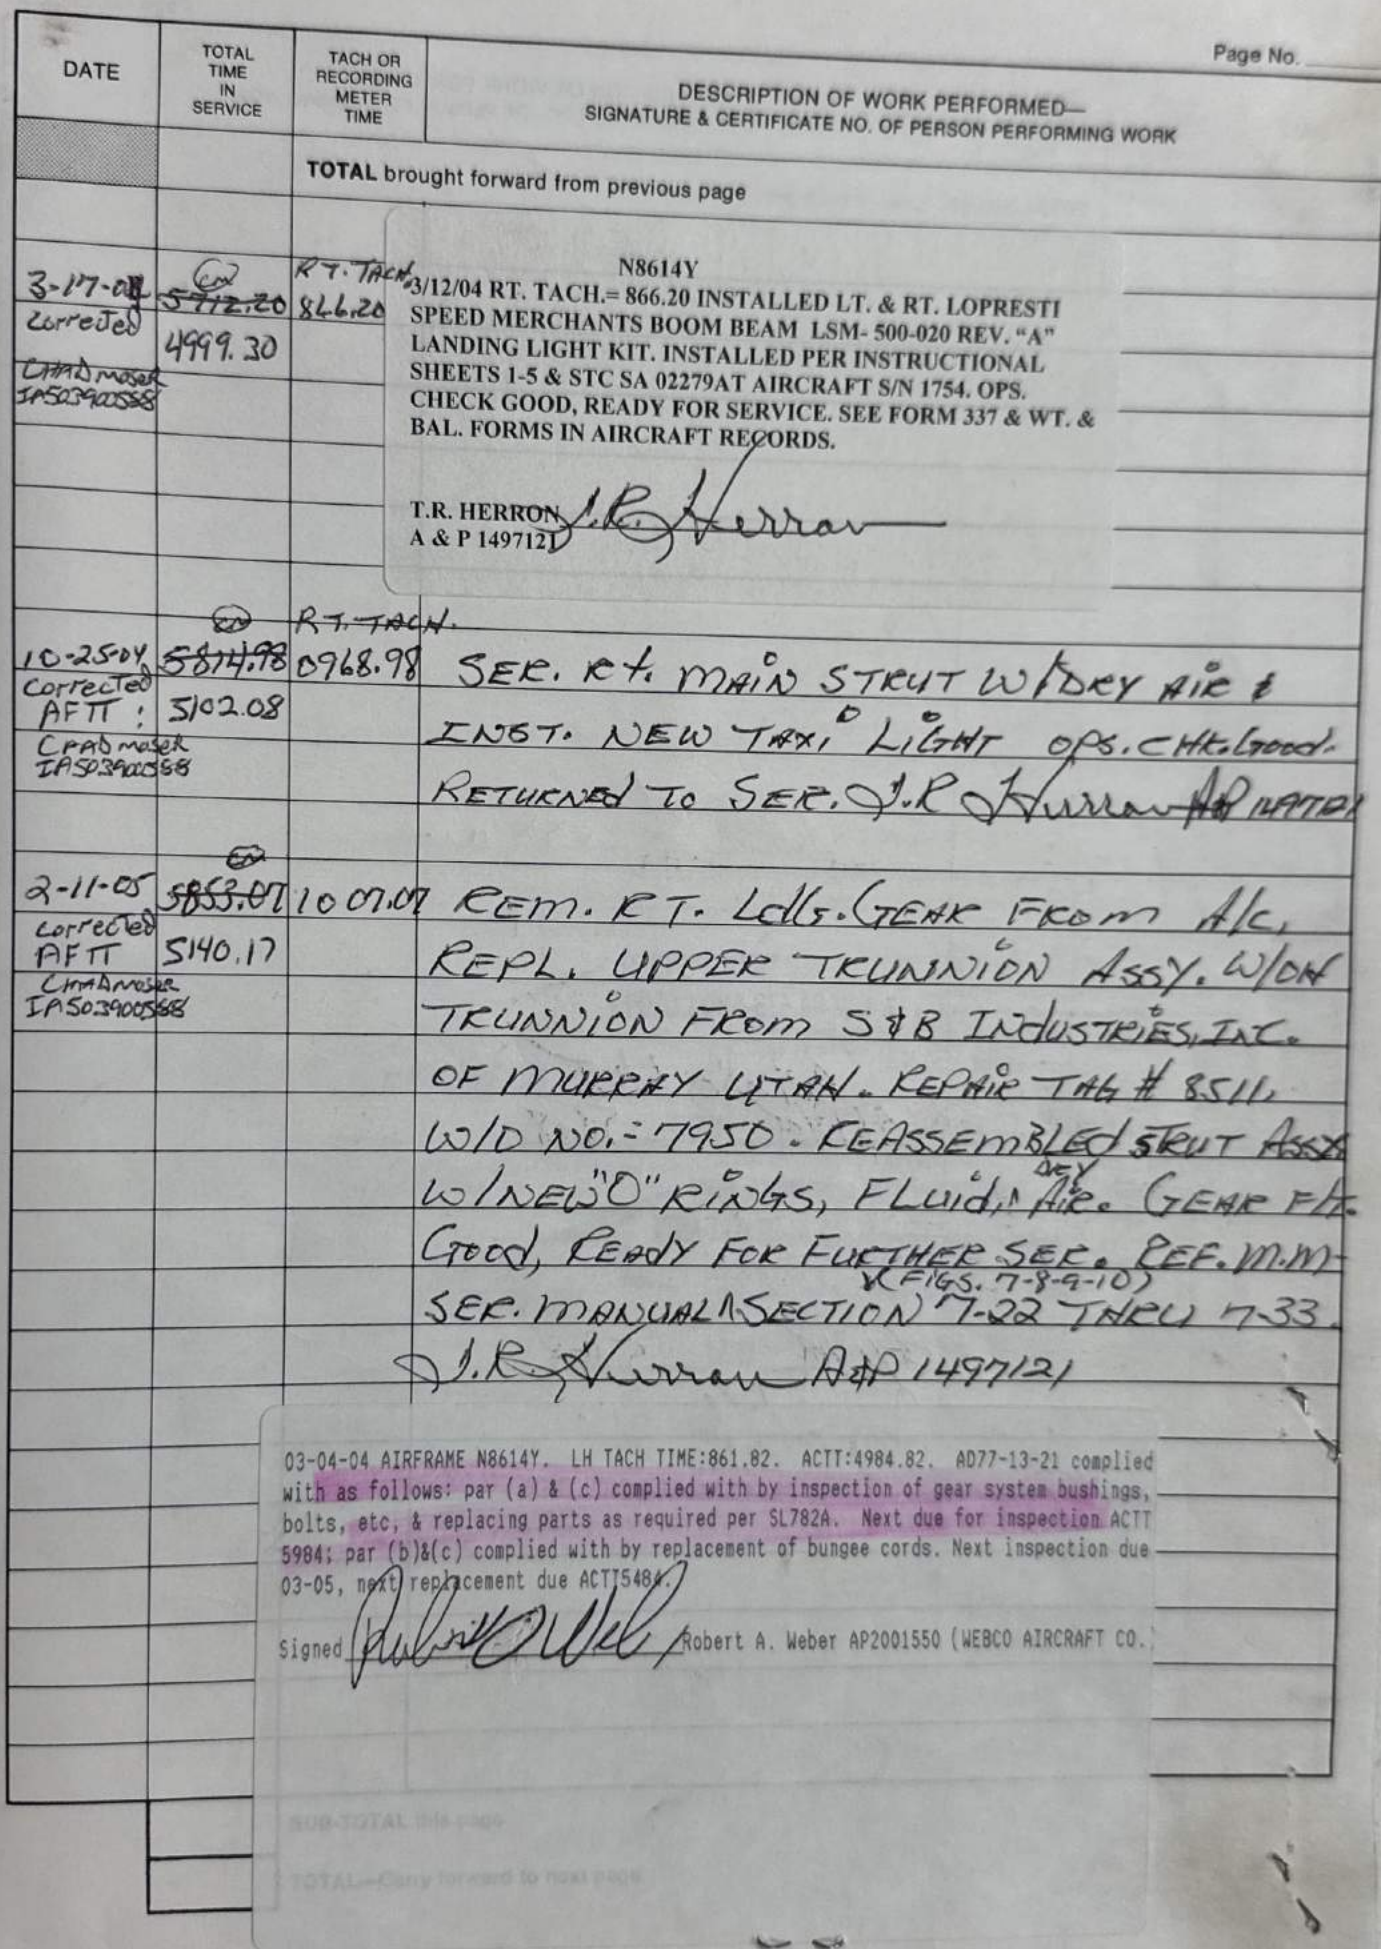 Page No.
DATE
TOTAL TIME IN SERVICE
TACH OR RECORDING METER TIME
DESCRIPTION OF WORK PERFORMED—
SIGNATURE & CERTIFICATE NO. OF PERSON PERFORMING WORK
TOTAL brought forward from previous page
3-17-04
cm
5712.20
RT. TACH.
866.20
Corrected
4999.30
CHAD moser
IA503900588
N8614Y
3/12/04 RT. TACH.= 866.20 INSTALLED LT. & RT. LOPRESTI
SPEED MERCHANTS BOOM BEAM LSM- 500-020 REV. “A”
LANDING LIGHT KIT. INSTALLED PER INSTRUCTIONAL
SHEETS 1-5 & STC SA 02279AT AIRCRAFT S/N 1754. OPS.
CHECK GOOD, READY FOR SERVICE. SEE FORM 337 & WT. &
BAL. FORMS IN AIRCRAFT RECORDS.
T.R. HERRON J.R. Herron
A & P 1497121
cm
RT. TACH.
10-25-04 5814.98 0968.98 SER. Rt. MAIN STRUT W/DRY AIR &
Corrected
AFTT : 5102.08
CHAD moser
IA503900588
INST. NEW TAXI LIGHT OPS. CHK. Good.
RETURNED TO SER. J.R Herron A&P 1497121
cm
2-11-05 5853.07 1007.07 REM. RT. Ldg. GEAR FROM A/C,
corrected
AFTT 5140.17
CHAD moser
IA503900588
REPL. UPPER TRUNNION ASSY. W/OH
TRUNNION FROM S&B INDUSTRIES, INC.
OF MURRAY UTAH. REPAIR TAG # 8511,
W/O NO.= 7950. REASSEMBLED STRUT ASSY
W/NEW "O" RINGS, FLUID, DRY AIR. GEAR Ft.
Good, READY FOR FURTHER SER. REF. M.M-
(FIGS. 7-8-9-10)
SER. MANUAL SECTION 7-22 THRU 7-33.
J.R. Herron A&P 1497121
03-04-04 AIRFRAME N8614Y. LH TACH TIME:861.82. ACTT:4984.82. AD77-13-21 complied
with as follows: par (a) & (c) complied with by inspection of gear system bushings,
bolts, etc, & replacing parts as required per SL782A. Next due for inspection ACTT
5984; par (b)&(c) complied with by replacement of bungee cords. Next inspection due
03-05, next replacement due ACTT5484.
Signed Robert A. Weber AP2001550 (WEBCO AIRCRAFT CO.)
SUB-TOTAL this page
TOTAL—Carry forward to next page